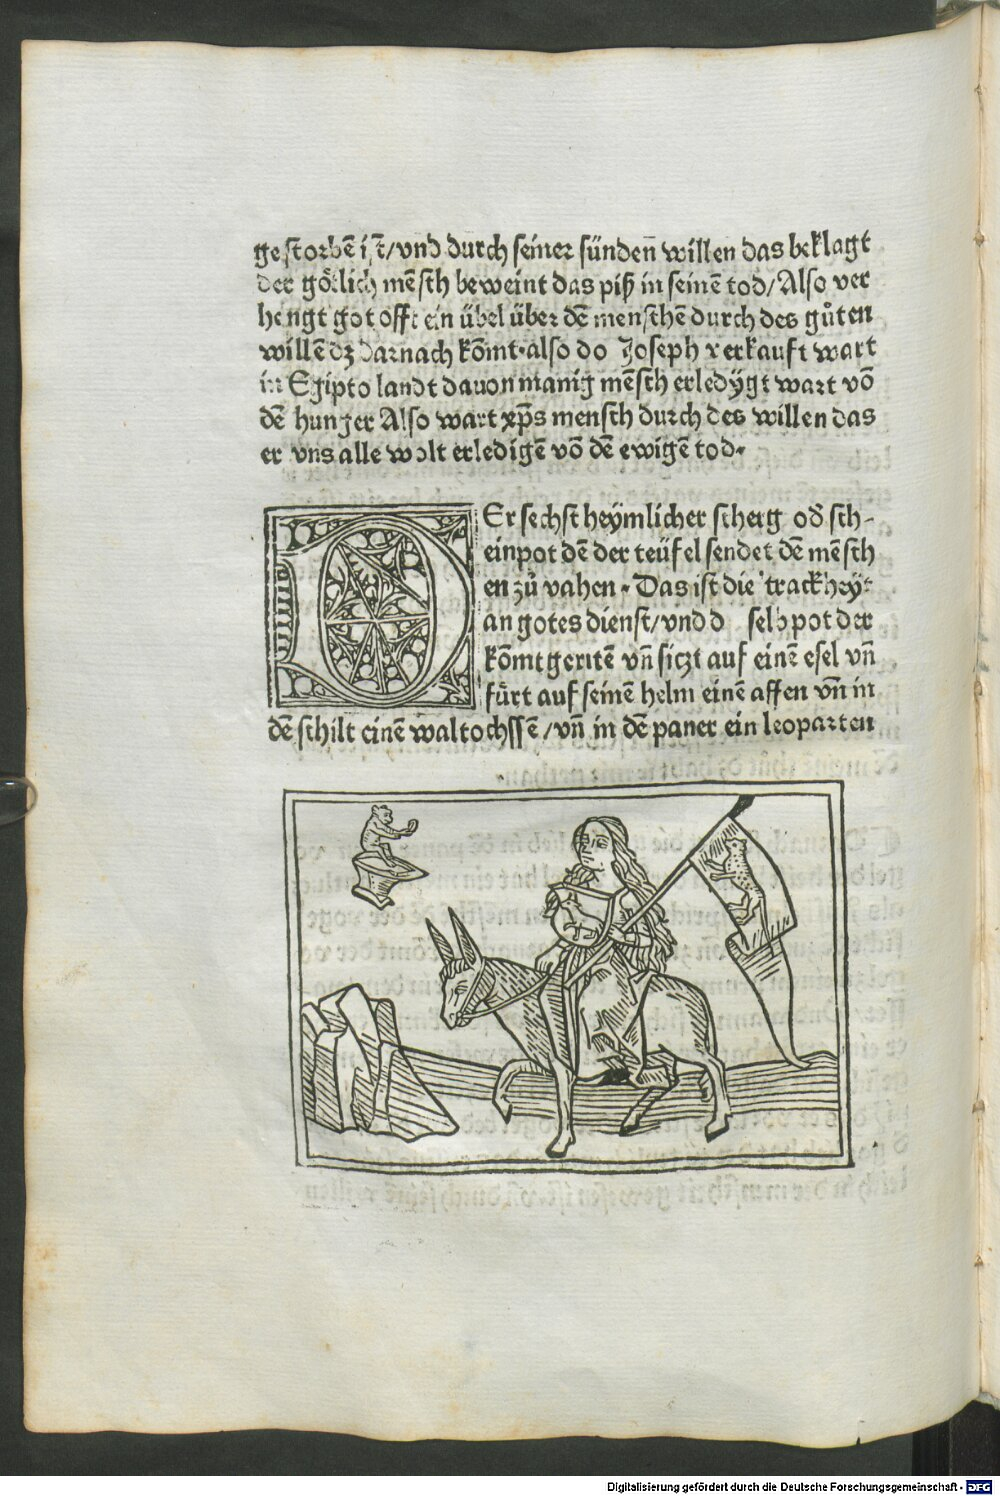 gestorbē iſt/vnd durch seiner sünden̄ willen das beklagt
der götlich mēsch beweint das piß in seinē tod/Also ver
hengt got offt ein übel über dē menschē durch des gůten
willē dz darnach kōmt·also do Joseph verkauft wart
in Egipto landt dauon manig mēsch erledÿgt wart vō
dē hunger Also wart xp̄s mensch durch des willen das
er vns alle wolt erledigē vō dē ewigē tod·
DEr sechst heÿmlicher scherg od̄ sch-
einpot dē der teüfel sendet dē mēsch
en zů vahen · Das ist die trackheyt
an gotes dienst/vnd d selb pot der
kōmt geritē vn̄ siczt auf einē esel vn̄
fürt auf seinē helm einē affen vn̄ in
dē schilt einē waltochſſē /vn̄ in dē paner ein leoparten
Digitalisierung gefördert durch die Deutsche Forschungsgemeinschaft - DFG